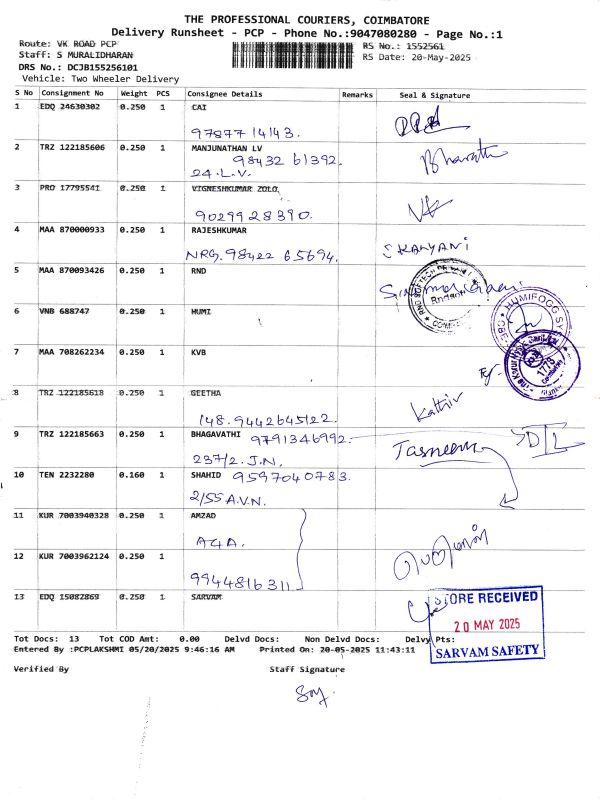 THE PROFESSIONAL COURIERS, COIMBATORE
Delivery Runsheet - PCP - Phone No.:9047080280 - Page No.:1
Route: VK ROAD PCP RS No.: 1552561
Staff: S MURALIDHARAN RS Date: 20-May-2025
DRS No.: DCJB155256101
Vehicle: Two Wheeler Delivery
S No Consignment No Weight PCS Consignee Details Remarks Seal & Signature
1 EDQ 24630302 0.250 1 CAI
97877 14143.
2 TRZ 122185606 0.250 1 MANJUNATHAN LV Bharath
98432 61392.
24.L.V.
3 PRO 17795541 0.250 1 VIGNESHKUMAR ZOLO, VK
9029928390.
4 MAA 870000933 0.250 1 RAJESHKUMAR SKALYANI
NRG. 98422 65694.
5 MAA 870093426 0.250 1 RND
6 VNB 688747 0.250 1 HUMI
HUMIFOGG SY
7 MAA 708262234 0.250 1 KVB
1778
8 TRZ 122185618 0.250 1 GEETHA Kathir
148. 9442645122.
9 TRZ 122185663 0.250 1 BHAGAVATHI 9791346992. Tasneem
237/2. J.N.
10 TEN 2232280 0.160 1 SHAHID 9597040783.
2/55 A.V.N.
11 KUR 7003940328 0.250 1 AMZAD
12 KUR 7003962124 0.250 1
9944816311
13 EDQ 15082869 0.250 1 SARVAM
STORE RECEIVED
20 MAY 2025
SARVAM SAFETY
Tot Docs: 13 Tot COD Amt: 0.00 Delvd Docs: Non Delvd Docs: Delvy Pts:
Entered By :PCPLAKSHMI 05/20/2025 9:46:16 AM Printed On: 20-05-2025 11:43:11
Verified By Staff Signature